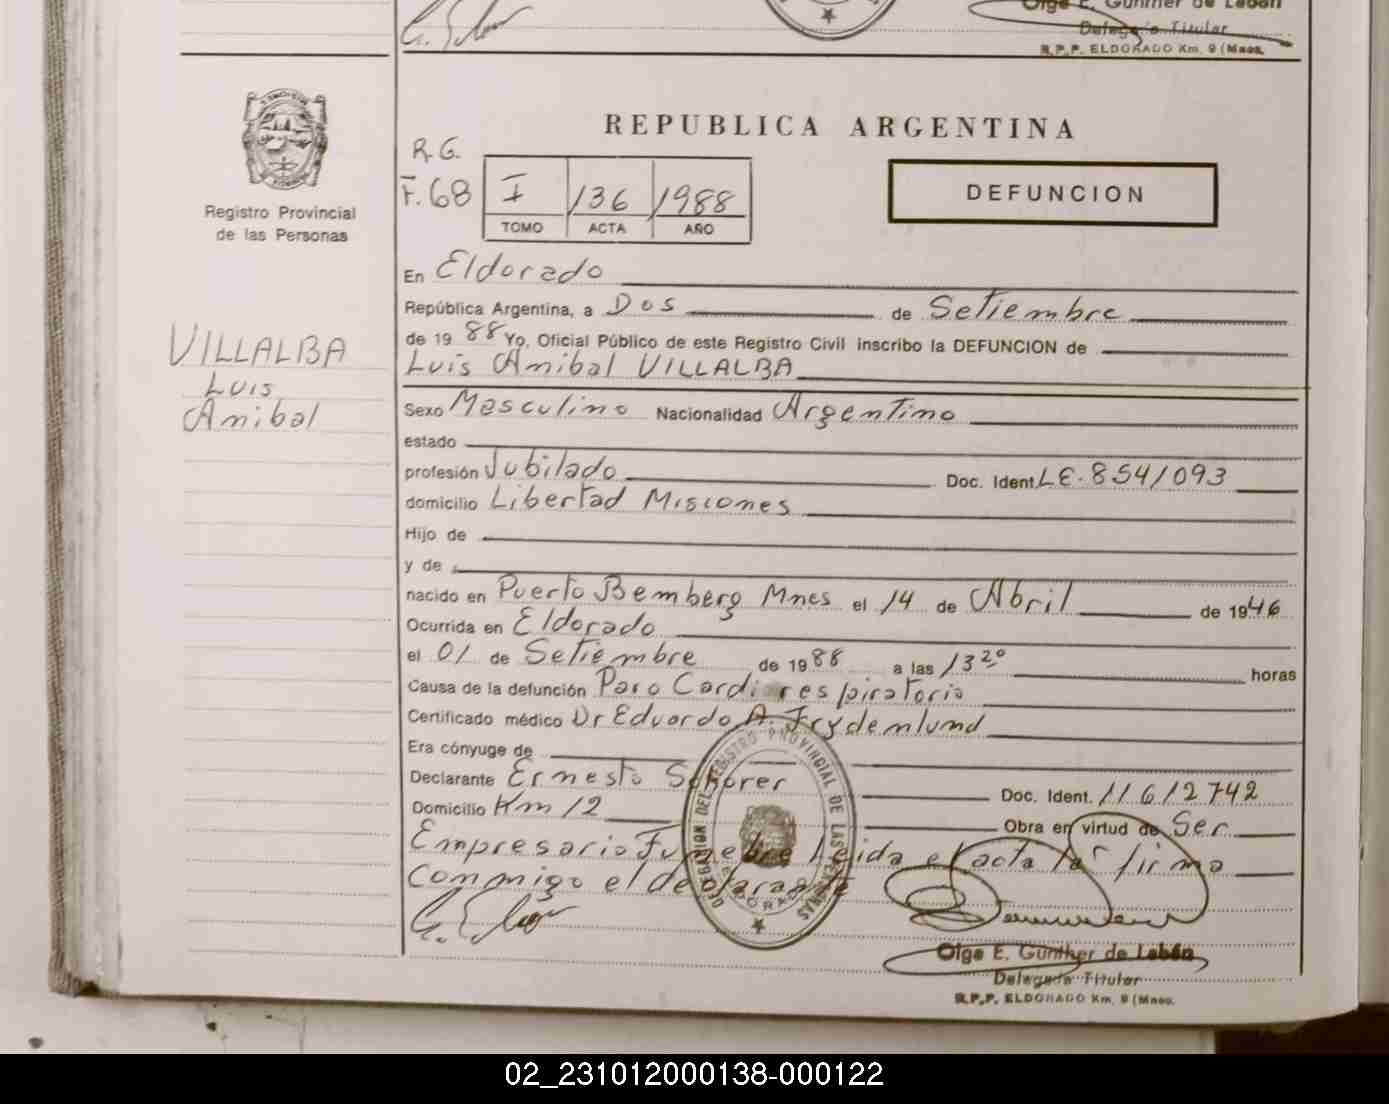 Olga E. Gunther de Lebón
Delegada Titular
R.P.P. ELDORADO Km. 9 (Mnes.
REPUBLICA ARGENTINA
R.G.
F. 68
I 136 1988
TOMO ACTA AÑO
DEFUNCION
Registro Provincial
de las Personas
VILLALBA
Luis
Anibal
En Eldorado
República Argentina, a Dos de Setiembre
de 19 88 Yo, Oficial Público de este Registro Civil inscribo la DEFUNCION de
Luis Anibal VILLALBA
Sexo Masculino Nacionalidad Argentino
estado
profesión Jubilado Doc. Ident. LE. 8541093
domicilio Libertad Misiones
Hijo de
y de
nacido en Puerto Bemberg Mnes el 14 de Abril de 1946
Ocurrida en Eldorado
el 01 de Setiembre de 19 88 a las 13 20 horas
Causa de la defunción Paro Cardiorespiratorio
Certificado médico Dr Eduardo A. Frydemlumd
Era cónyuge de
Declarante Ernesto
Doc. Ident. 11612742
Domicilio Km 12
Obra en virtud de Ser
Empresario Funebre leida el acta la firma
Conmigo el declarante
DELEGACION DEL REGISTRO PROVINCIAL DE LAS PERSONAS
ELDORADO
Olga E. Gunther de Lebón
Delegada Titular
R.P.P. ELDORADO Km. 9 (Mnes.
02_231012000138-000122